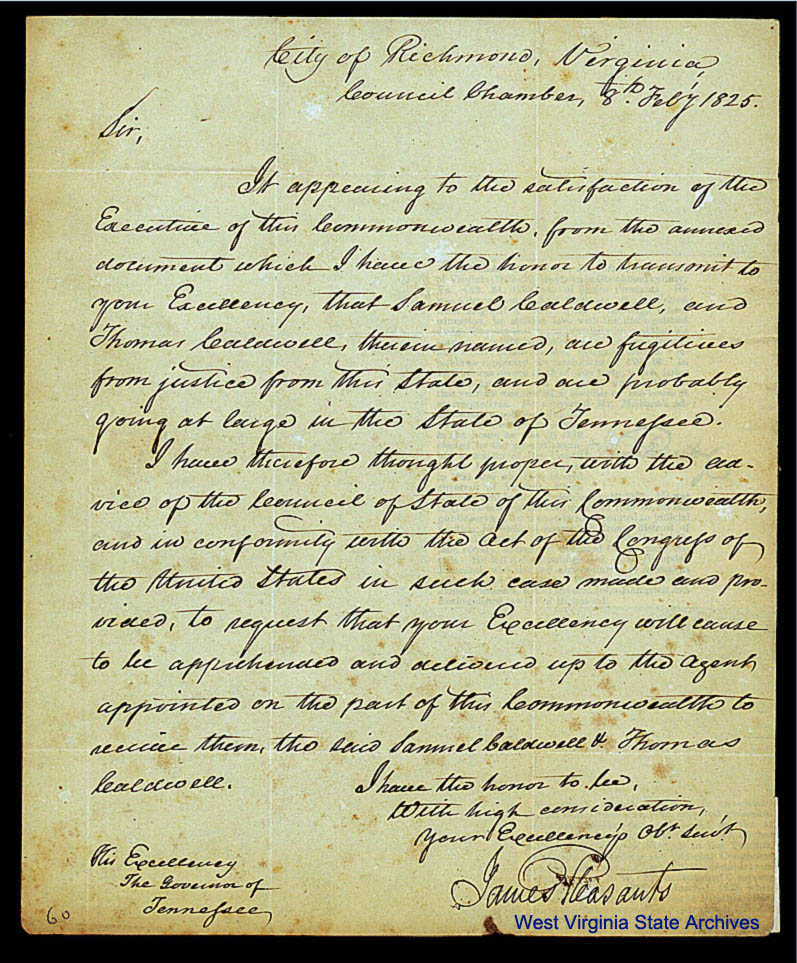 City of Richmond, Virginia,
Council Chamber, 8th Feb'y 1825.
Sir,
It appearing to the satisfaction of the
Executive of this Commonwealth, from the annexed
document which I have the honor to transmit to
your Excellency, that Samuel Caldwell, and
Thomas Caldwell, therein named, are fugitives
from justice from this State, and are probably
going at large in the State of Tennessee.
I have therefore thought proper, with the ad-
vice of the Council of State of this Commonwealth,
and in conformity with the Act of the Congress of
the United States in such case made and pro-
vided, to request that your Excellency will cause
to be apprehended and delivered up to the Agent
appointed on the part of this Commonwealth to
receive them, the said Samuel Caldwell & Thomas
Caldwell.
I have the honor to be,
With high consideration,
Your Excellency's Obt Servt
James Pleasants
His Excellency
The Governor of
Tennessee
60
West Virginia State Archives